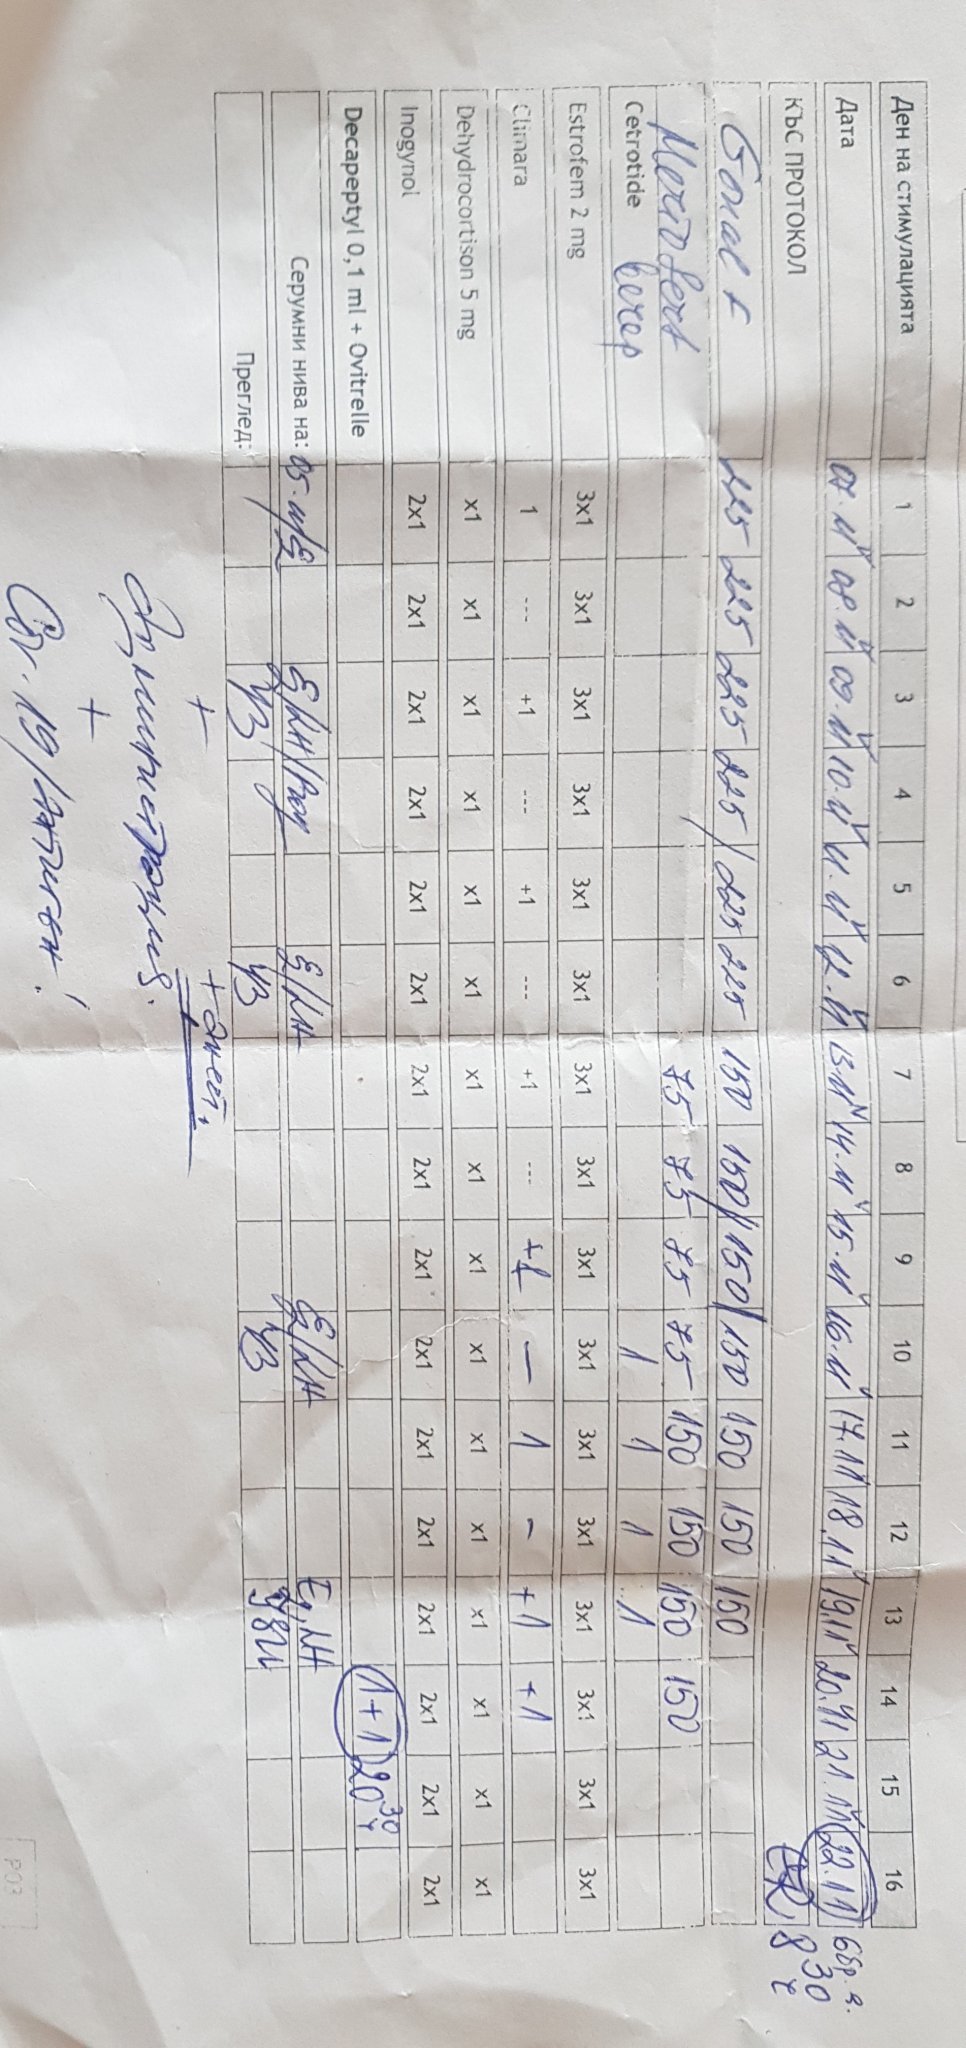 Ден на стимулацията 1 2 3 4 5 6 7 8 9 10 11 12 13 14 15 16
Дата 07.11 08.11 09.11 10.11 11.11 12.11 13.11 14.11 15.11 16.11 17.11 18.11 19.11 20.11 21.11 22.11
КЪС ПРОТОКОЛ 8 30 ч
Gonal F 225 225 225 225 225 225 150 150 150 150 150 150 150
Meriofert 75 75 75 75 150 150 150 150
Cetrotide вечер 1 1 1 1
Estrofem 2 mg 3x1 3x1 3x1 3x1 3x1 3x1 3x1 3x1 3x1 3x1 3x1 3x1 3x1 3x1 3x1 3x1
Climara 1 --- +1 --- +1 --- +1 --- +1 — 1 - +1 +1
Dehydrocortison 5 mg x1 x1 x1 x1 x1 x1 x1 x1 x1 x1 x1 x1 x1 x1 x1 x1
Inogynol 2x1 2x1 2x1 2x1 2x1 2x1 2x1 2x1 2x1 2x1 2x1 2x1 2x1 2x1 2x1 2x1
Decapeptyl 0,1 ml + Ovitrelle 1+1 20 30 ч
Серумни нива на: E2/LH/Prog E2/LH E2/LH E2, LH
Преглед: УЗ УЗ УЗ УЗИ
+ + Анест.
Азитромицин.
+
Cov-19/Антиген!
P03